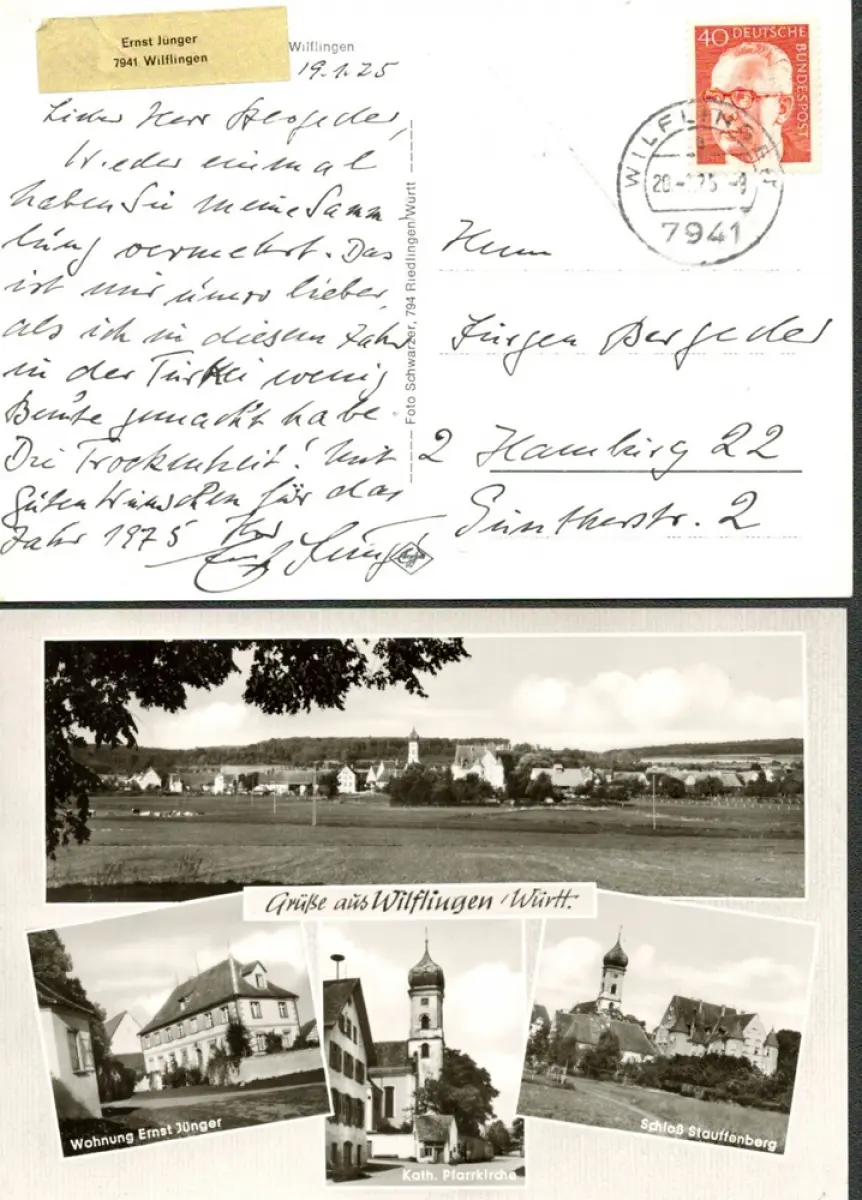 Ernst Jünger
7941 Wilflingen
Wilflingen
19.1.75
Lieber Herr Bergeder,
Wieder einmal
haben Sie meine Samm
lung vermehrt. Das
ist mir umso lieber,
als ich in diesem Jahr
in der Türkei wenig
Beute gemacht habe.
Die Trockenheit! Mit
guten Wünschen für das
Jahr 1975 Ihr
Ernst Jünger
Foto Schwarzer, 794 Riedlingen/Württ
40 DEUTSCHE
BUNDESPOST
WILFLINGEN
7941
Herrn
Jürgen Bergeder
2 Hamburg 22
Güntherstr. 2
Grüße aus Wilflingen/Württ.
Wohnung Ernst Jünger
Kath. Pfarrkirche
Schloß Stauffenberg